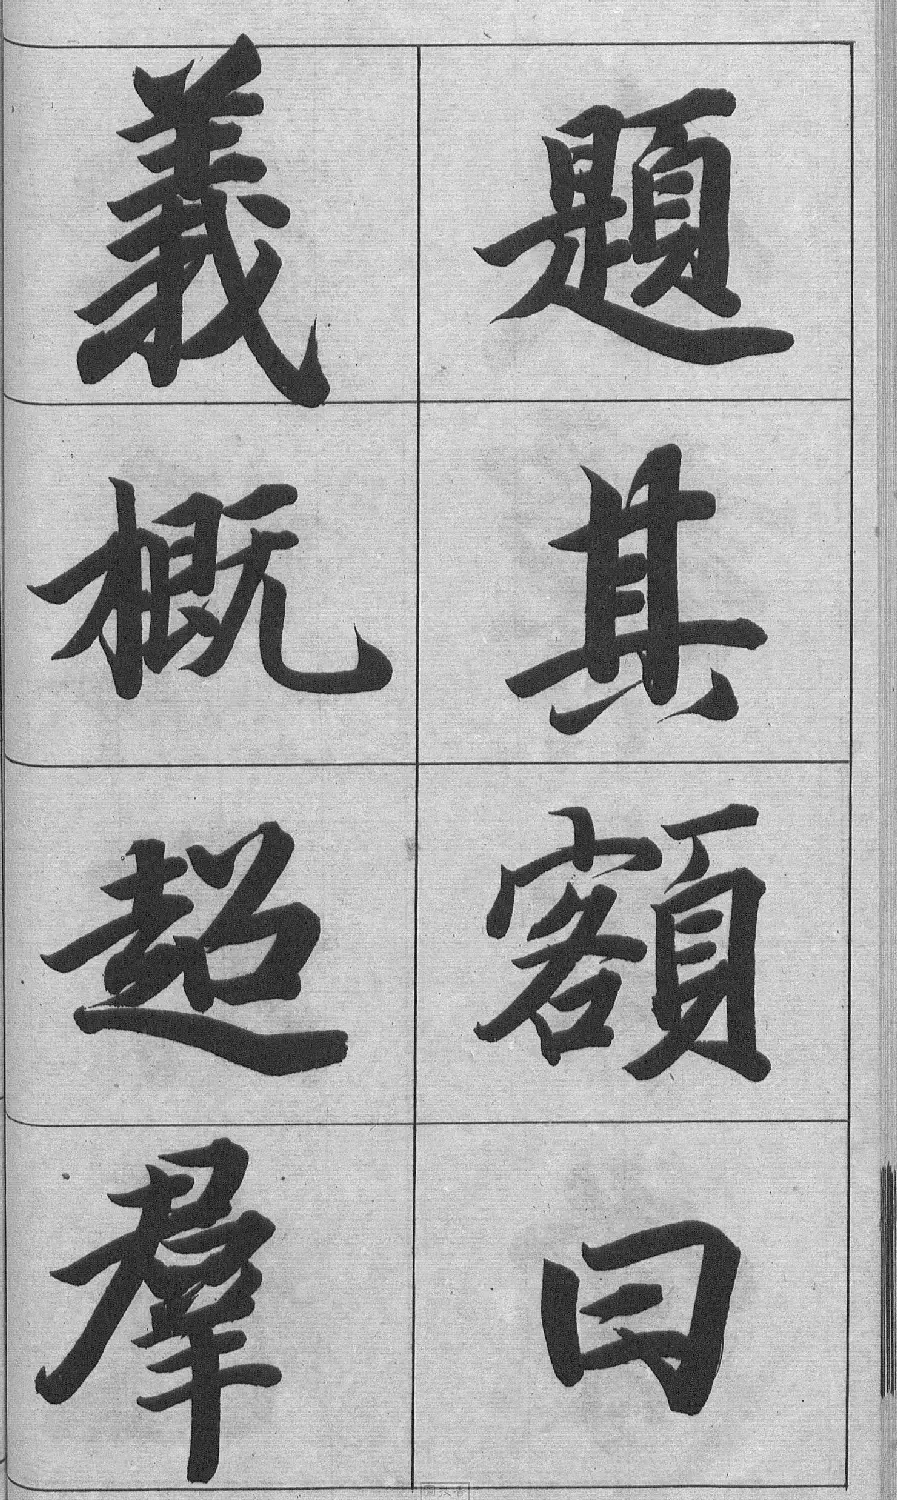 題其額曰
義概超羣